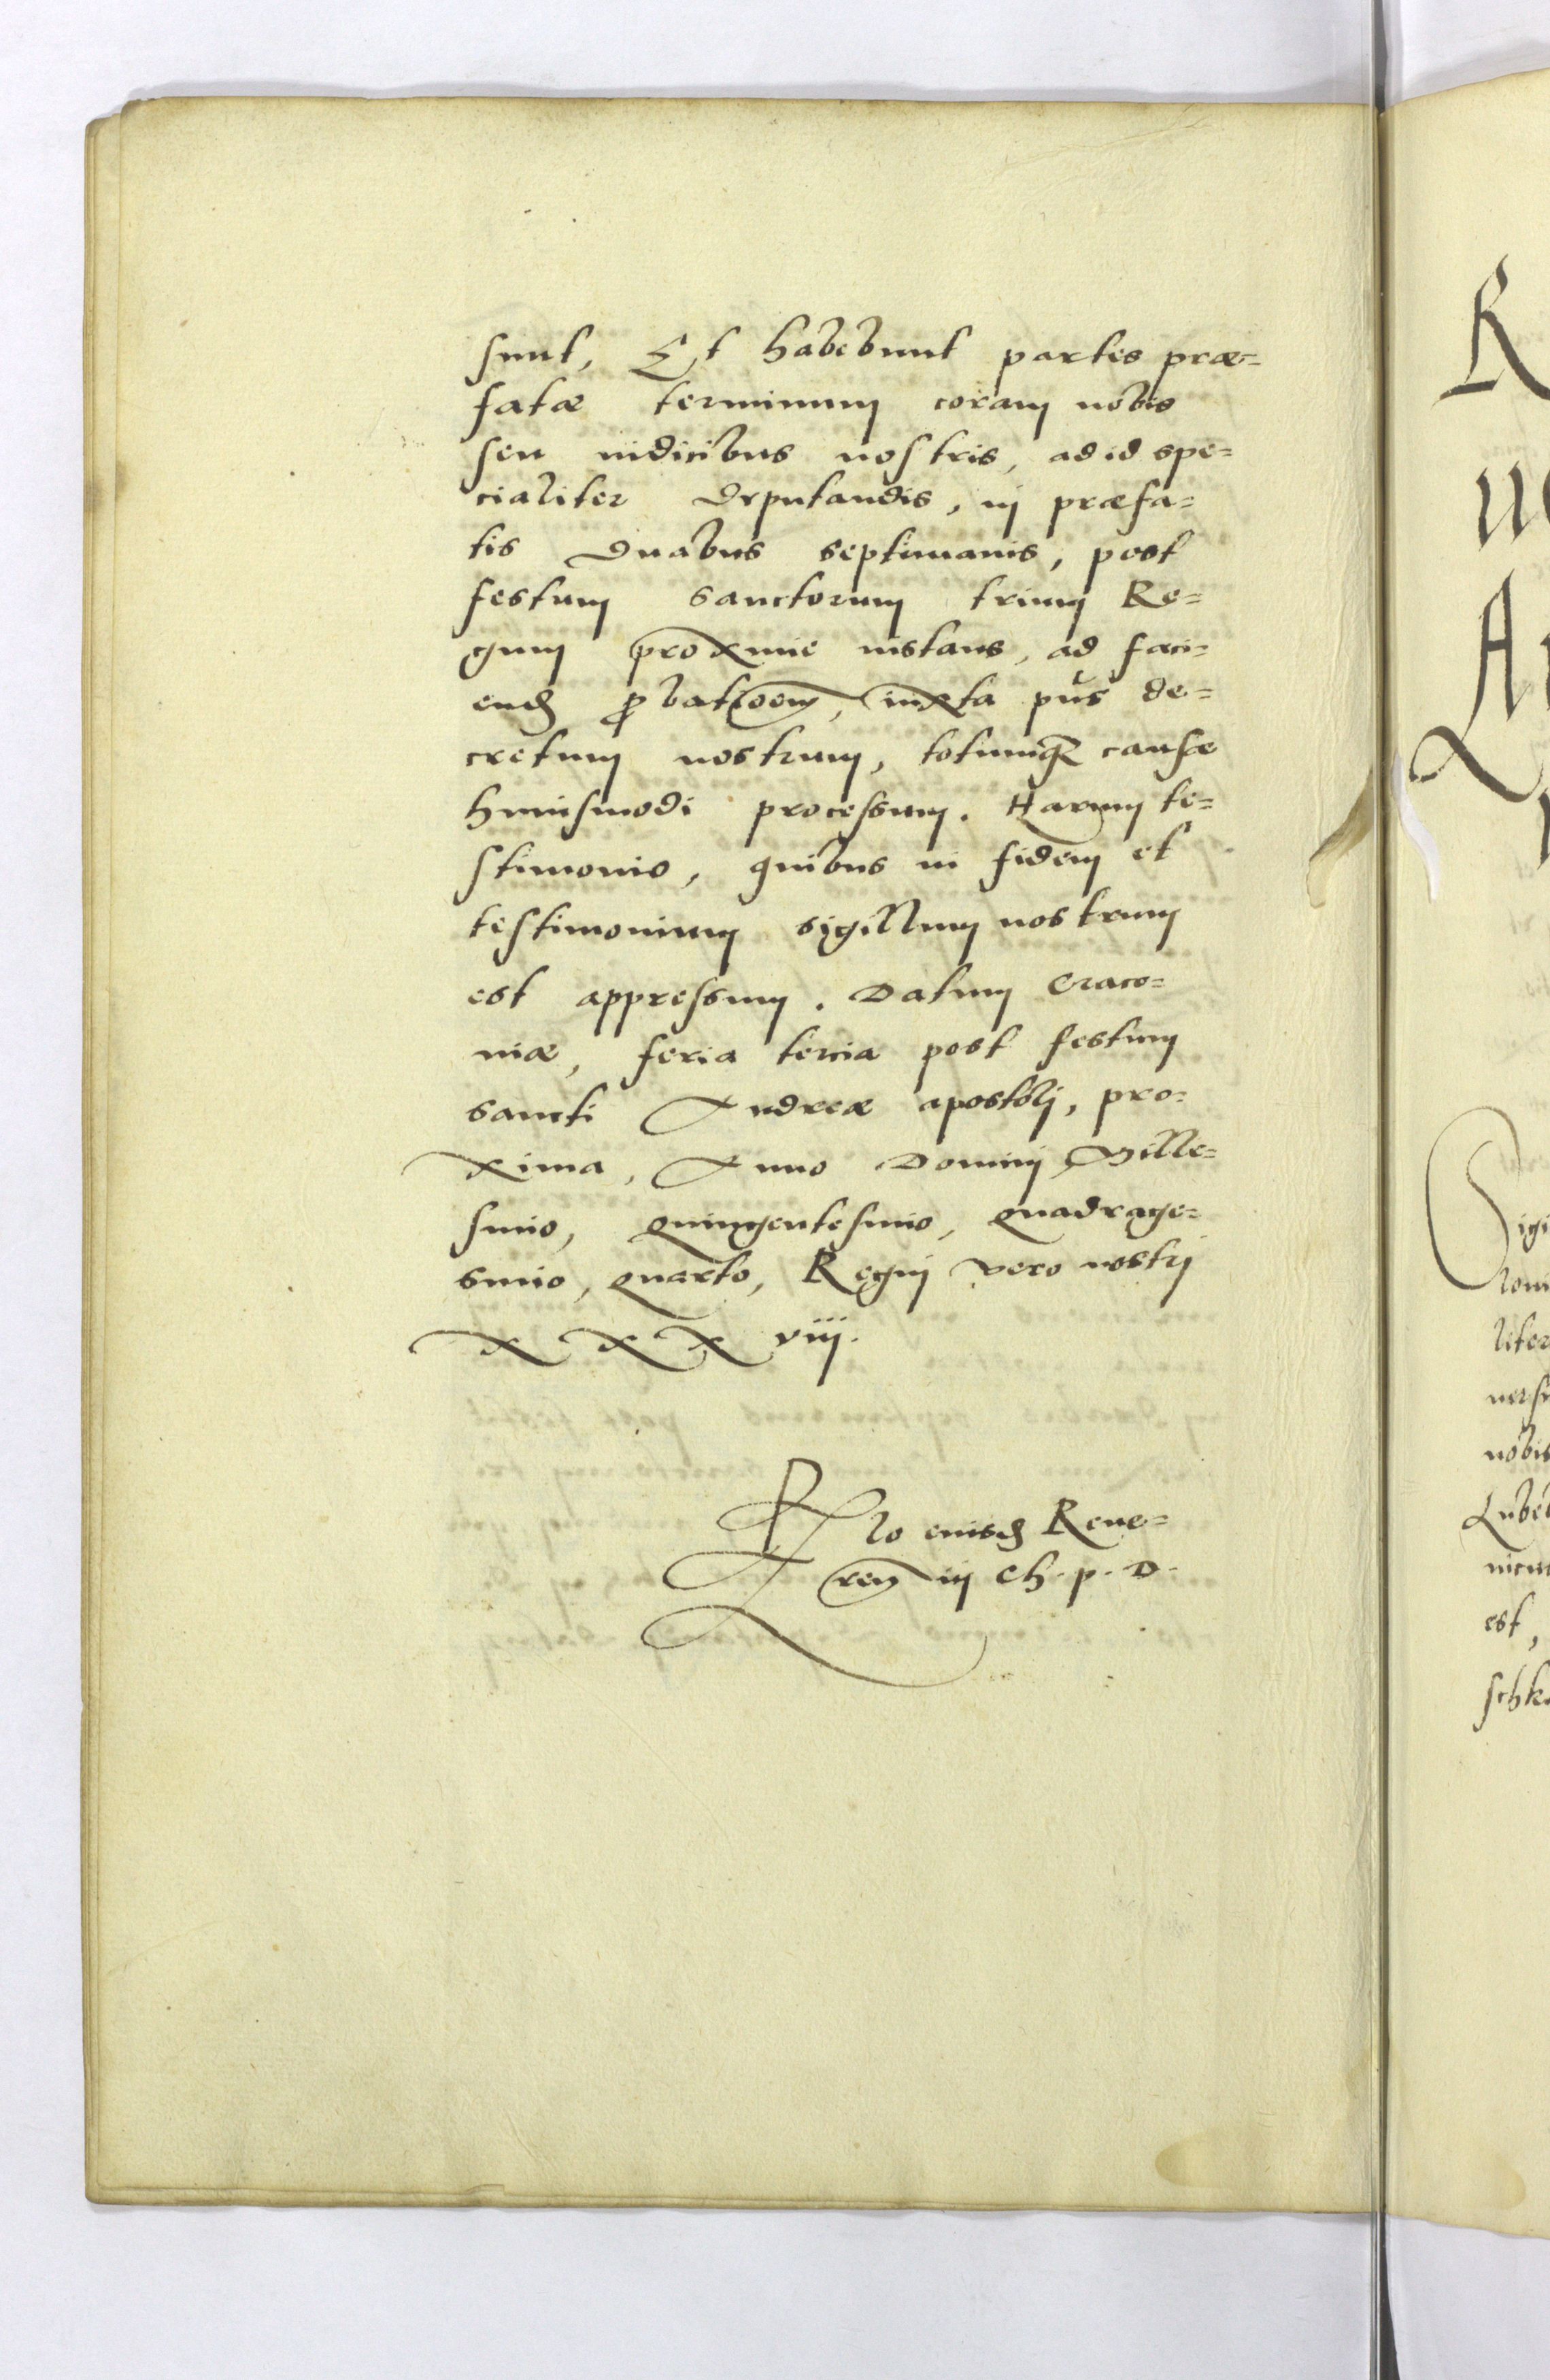 sunt, Et habebunt partes præ=
fatæ terminum coram nobis
seu iudicibus nostris, ad id spe=
cialiter deputandis, in præfa=
tis duabus septimanis, post
festum sanctorum trium Re=
gum proxime instans, ad faci=
end ꝓbatioem, iuxta pūs de=
cretum nostrum, totumq; causæ
huiusmodi processum. Harum te=
stimonio, quibus in fidem et
testimonium sigillum nostrum
est appressum. Datum Craco=
uiæ, feria tercia post festum
sancti Andreæ apostoli, pro=
xima, Anno Domini Mille=
simo, quingentesimo, quadrage=
simo, quarto, Regni vero nostri
XXXviij.
Rlo eiusd Reue=
ren in Ch. p. D.
R
A
igi
liter
nobis
est,